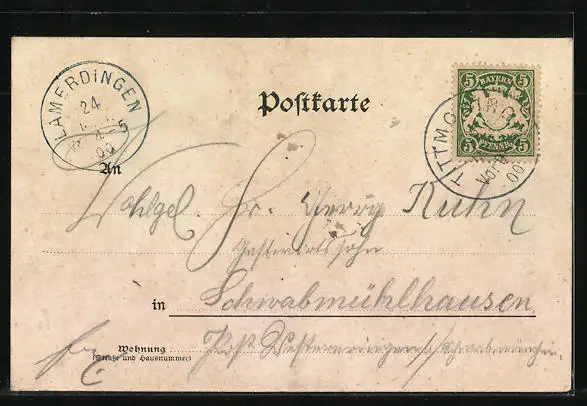 LAMERDINGEN
24
4-5
00
Postkarte
5 BAYERN 5
5 PFENNIG 5
TITTMONING
Vorm
00
An
Wohlgel. Hr. Georg Kuhn
Gastwirtssohn
in Schwabmühlhausen
Wohnung
(Straße und Hausnummer)
Post